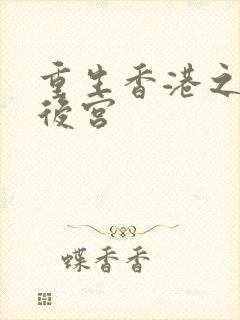 重生香港之
後宮
蝶香香